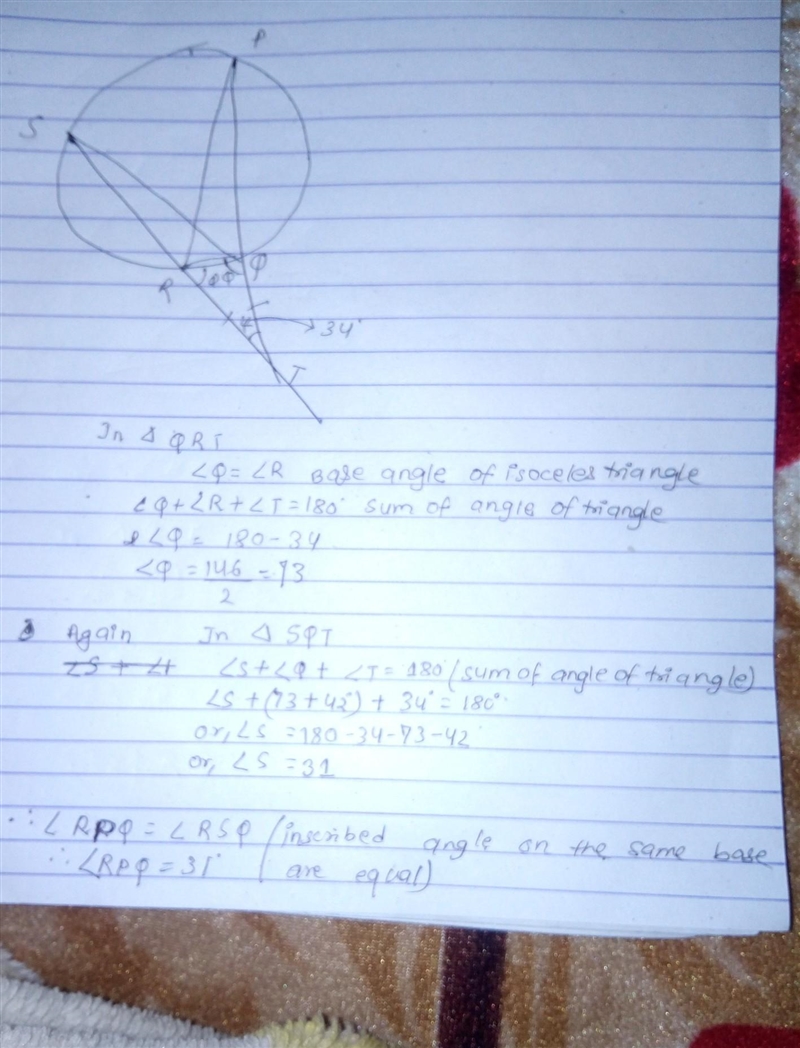 P
S
R
Q
34°
T
In Δ QRT
∠Q = ∠R Base angle of isoceles triangle
∠Q + ∠R + ∠T = 180° sum of angle of triangle
2∠Q = 180 - 34
∠Q = 146/2 = 73
Again In Δ SQT
∠S + ∠Q + ∠T = 180 (sum of angle of triangle)
∠S + (73 + 42°) + 34° = 180°
or, ∠S = 180 - 34 - 73 - 42
or, ∠S = 31
∴ ∠RPQ = ∠RSQ (inscribed angle on the same base
∴ ∠RPQ = 31° are equal)